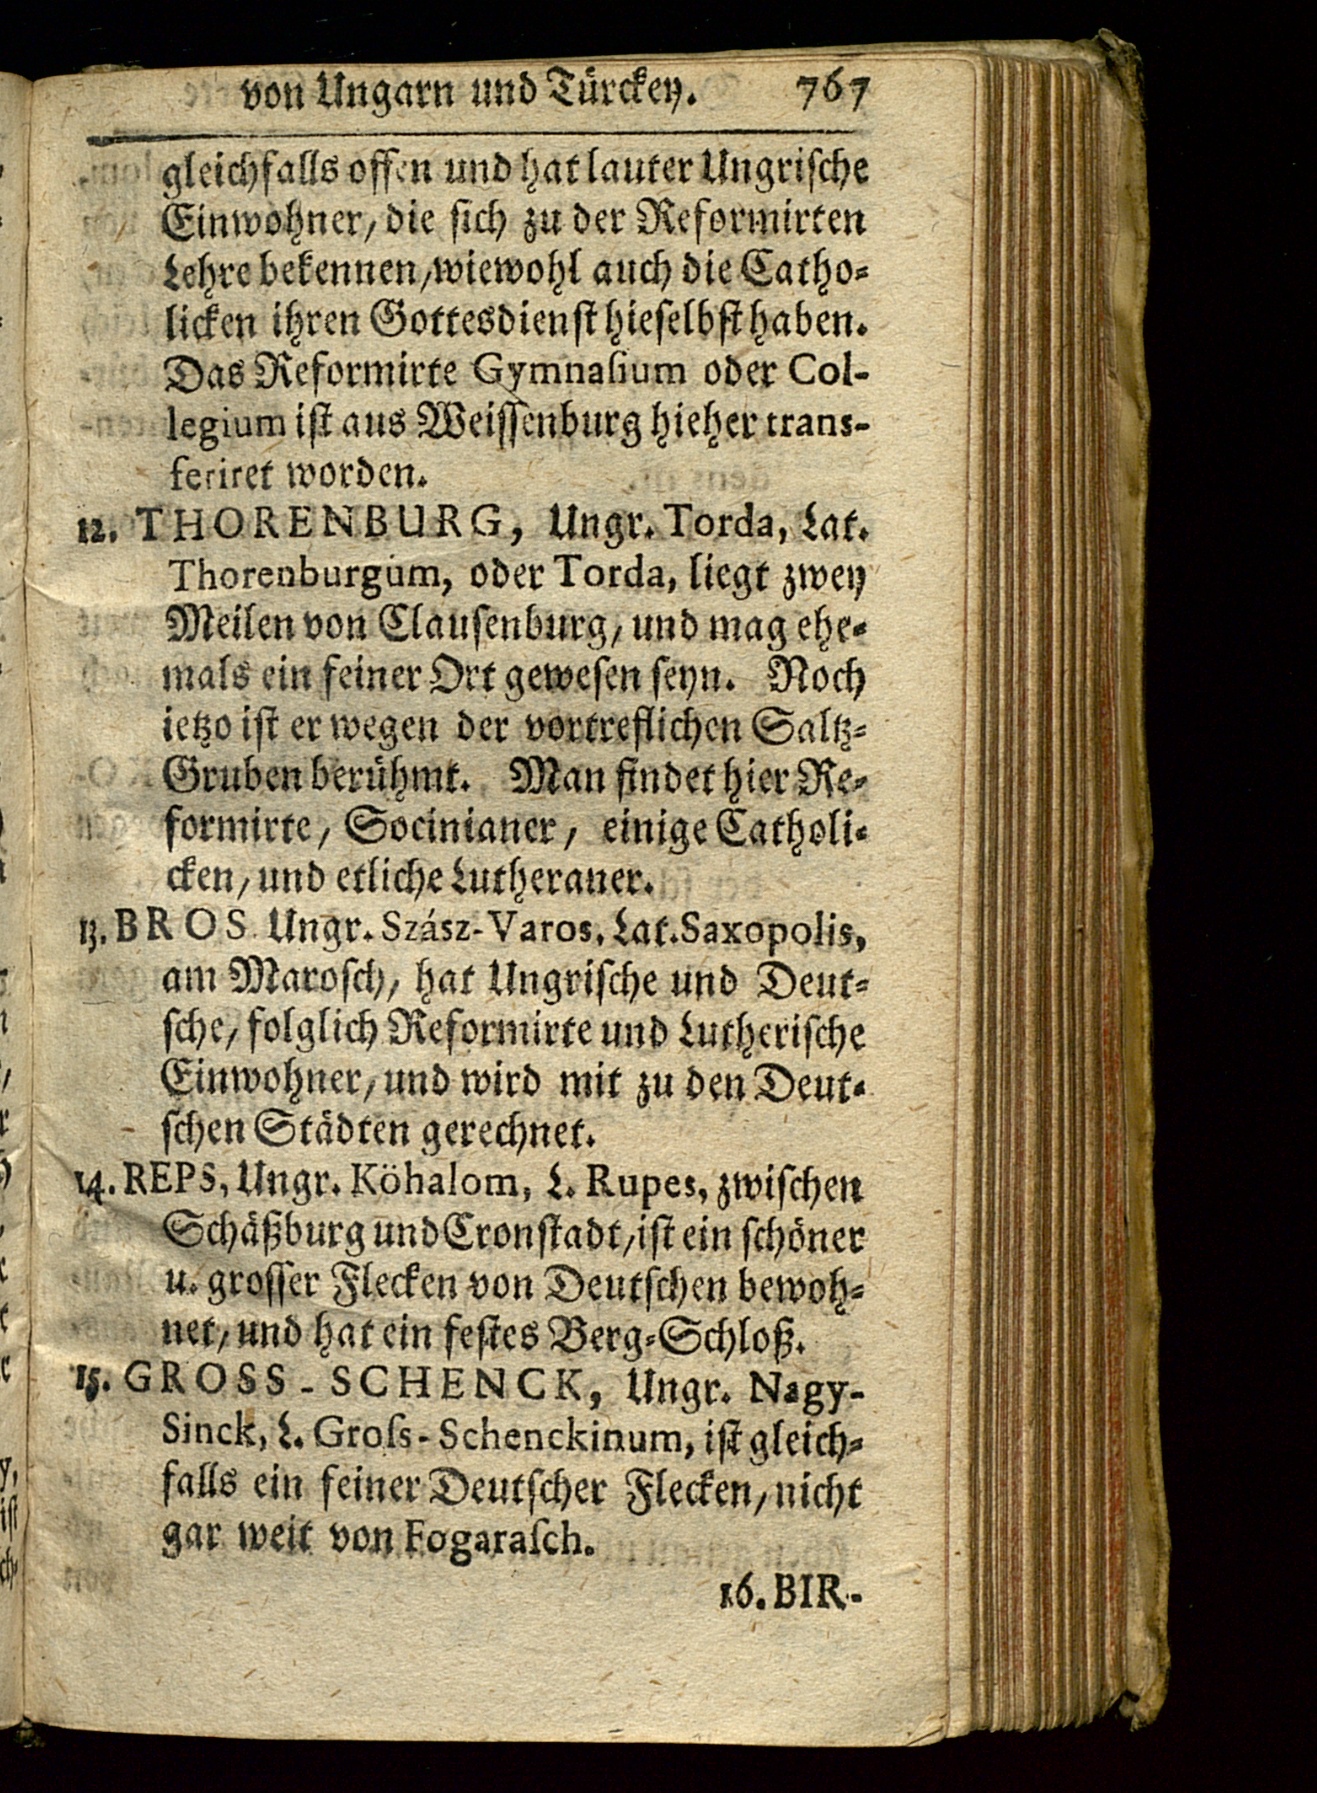 von Ungarn und Türckey. 767
gleichfalls offen und hat lauter Ungrische
Einwohner, die sich zu der Reformirten
Lehre bekennen, wiewohl auch die Catho-
licken ihren Gottesdienst hieselbst haben.
Das Reformirte Gymnasium oder Col-
legium ist aus Weissenburg hieher trans-
feriret worden.
12. THORENBURG, Ungr. Torda, Lat.
Thorenburgum, oder Torda, liegt zwey
Meilen von Clausenburg, und mag ehe-
mals ein feiner Ort gewesen seyn. Noch
ietzo ist er wegen der vortreflichen Saltz-
Gruben berühmt. Man findet hier Re-
formirte, Socinianer, einige Catholi-
cken, und etliche Lutheraner.
13. BROS Ungr. Szász-Varos, Lat. Saxopolis,
am Marosch, hat Ungrische und Deut-
sche, folglich Reformirte und Lutherische
Einwohner, und wird mit zu den Deut-
schen Städten gerechnet.
14. REPS, Ungr. Köhalom, L. Rupes, zwischen
Schäßburg und Cronstadt, ist ein schöner
u. grosser Flecken von Deutschen bewoh-
net, und hat ein festes Berg-Schloß.
15. GROSS-SCHENCK, Ungr. Nagy-
Sinck, L. Gross-Schenckinum, ist gleich-
falls ein feiner Deutscher Flecken, nicht
gar weit von Fogarasch.
16. BIR-